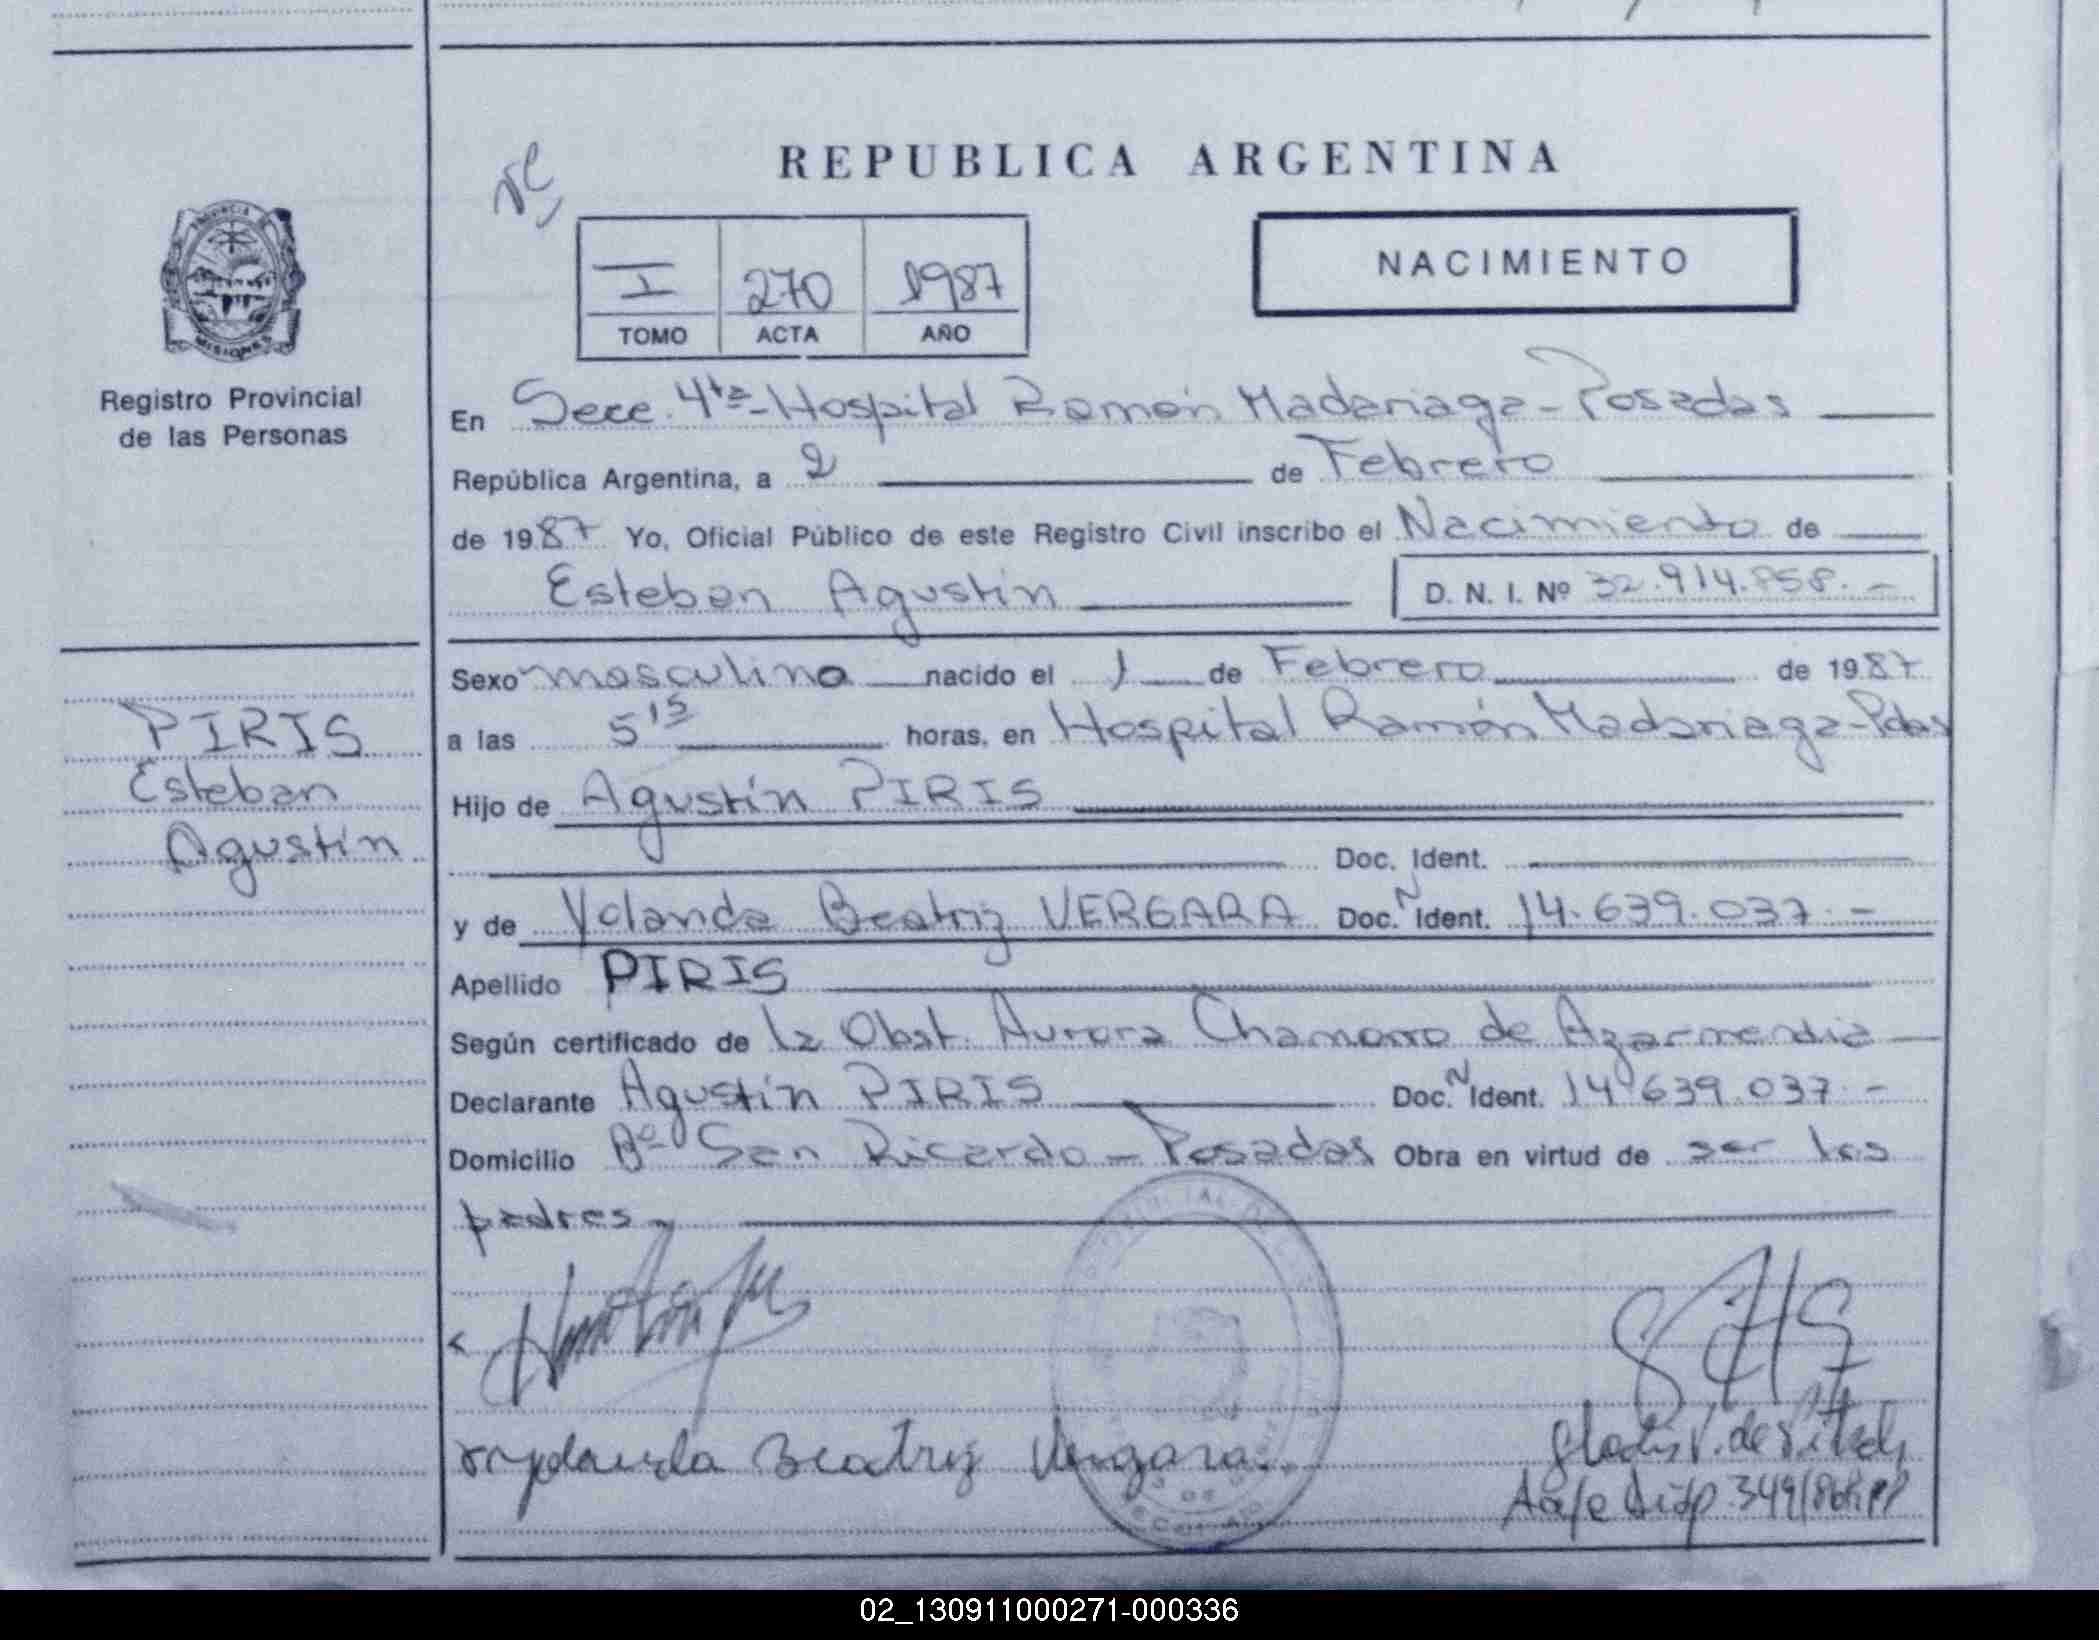 REPUBLICA ARGENTINA
NACIMIENTO
I 270 1987
TOMO ACTA AÑO
PROVINCIA DE
MISIONES
Registro Provincial
de las Personas
En Secc. 4ta - Hospital Ramón Madariaga - Posadas
República Argentina, a 2 de Febrero
de 1987 Yo, Oficial Público de este Registro Civil inscribo el Nacimiento de
Esteban Agustín D. N. I. Nº 32.914.858.-
PIRIS
Esteban
Agustín
Sexo masculino nacido el 1 de Febrero de 1987
a las 5 15 horas, en Hospital Ramón Madariaga - Pdas
Hijo de Agustín PIRIS
Doc. Ident.
y de Yolanda Beatriz VERGARA Doc. N Ident. 14.639.037.-
Apellido PIRIS
Según certificado de la Obst. Aurora Chamorro de Azarmendia
Declarante Agustín PIRIS Doc. N Ident. 14.639.037.-
Domicilio Bº San Ricardo - Posadas Obra en virtud de ser los
padres
Beatriz Vergara
02_130911000271-000336